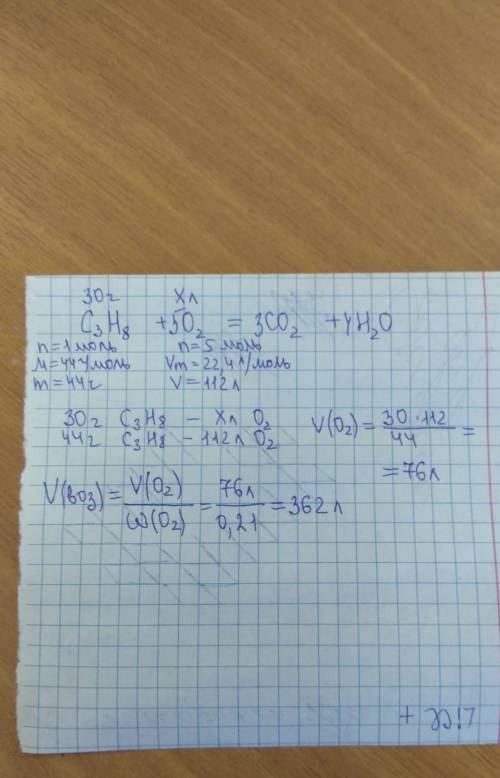 30г Xл
C₃H₈ +5O₂ = 3CO₂ +4H₂O
n=1моль n=5 моль
M=44г/моль Vm=22,4л/моль
m=44г V=112л
30г C₃H₈ – Xл O₂ V(O₂)=30·112/44=
44г C₃H₈ – 112л O₂
=76л
V(воз)=V(O₂)/ω(O₂)=76л/0,21=362л